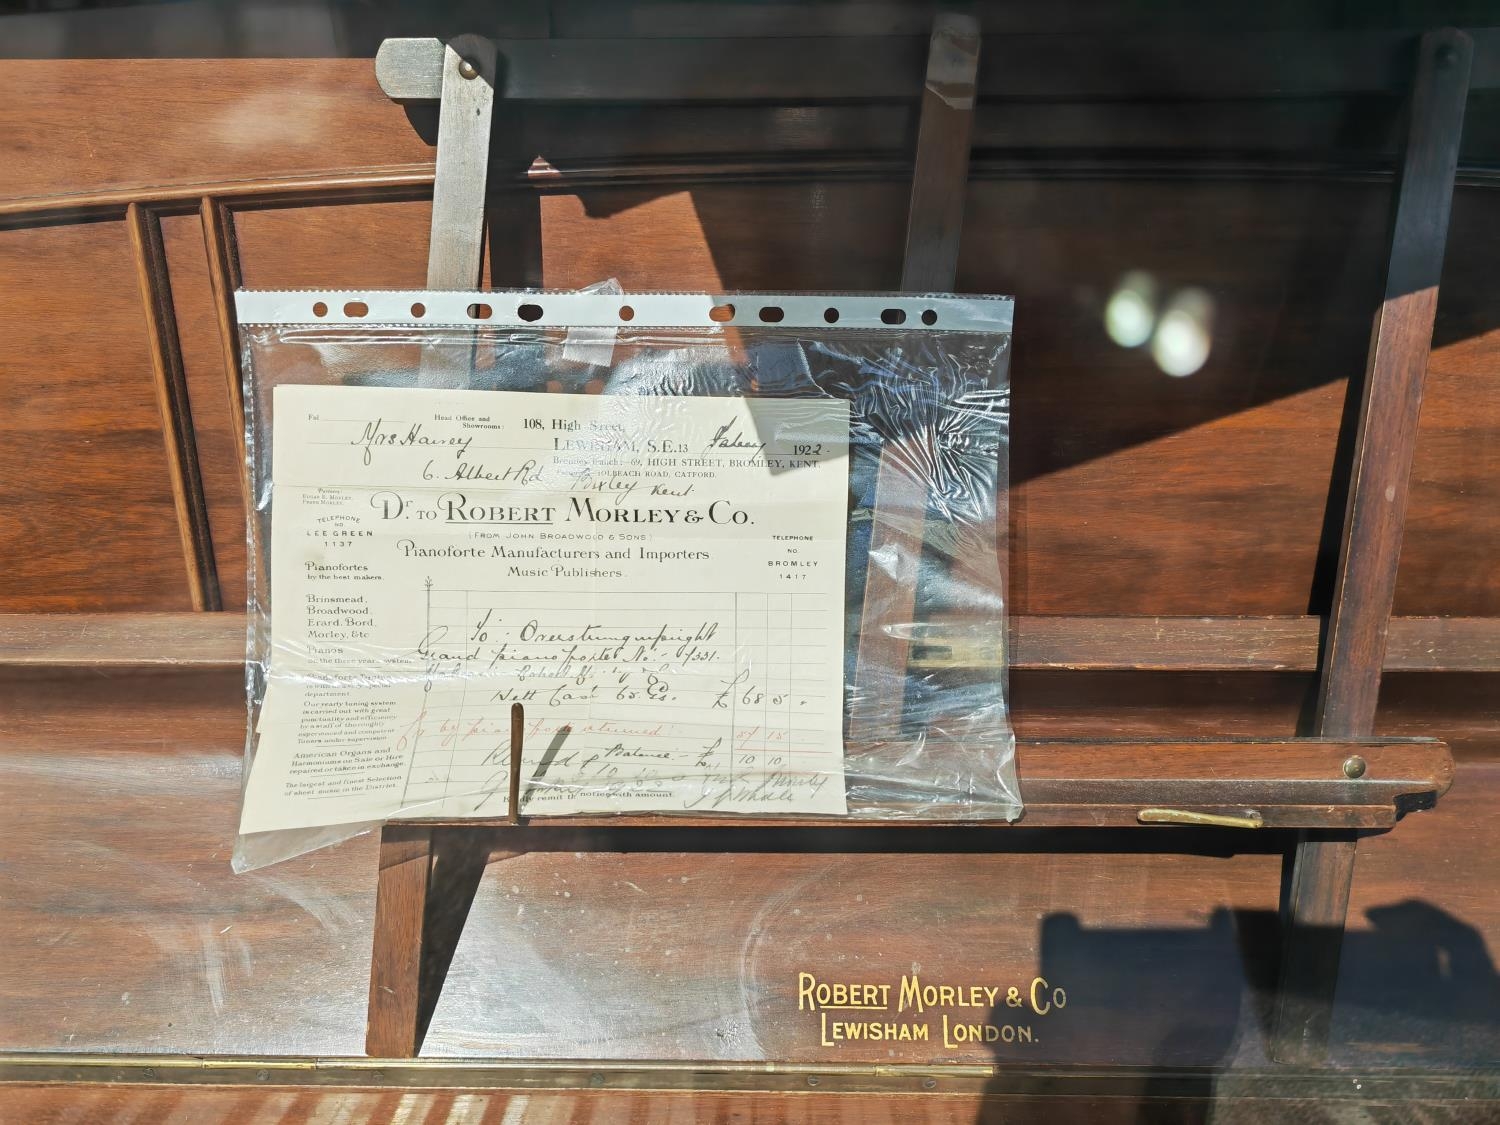 Fol
Head Office and
Showrooms:
108, High Street,
Mrs Harvey
LEWISHAM, S.E.13
1922
69, HIGH STREET, BROMLEY, KENT.
6. Albert Rd
HOLBEACH ROAD, CATFORD.
Kent.
Partners:
EDGAR E. MORLEY,
FRANK MORLEY.
Dr. TO ROBERT MORLEY & Co.
TELEPHONE
NO.
LEE GREEN
1137
(FROM JOHN BROADWOOD & SONS)
Pianoforte Manufacturers and Importers
Music Publishers.
TELEPHONE
NO.
BROMLEY
1417
Pianofortes
by the best makers.
Brinsmead,
Broadwood,
Erard, Bord,
Morley, &c
Pianos
on the three years system
department
Our yearly tuning system
is carried out with great
punctuality and efficiency
by a staff of thoroughly
experienced and competent
Tuners under supervision
American Organs and
Harmoniums on Sale or Hire
repaired or taken in exchange.
The largest and finest Selection
of sheet music in the District.
To:- Overstrung upright
Grand pianoforte No:-
Nett Cash 65 Gs. £ 68 5
by pianoforte returned 57 15
Balance:- £ 10 10
Kindly remit this notice with amount.
ROBERT MORLEY & Co
LEWISHAM LONDON.